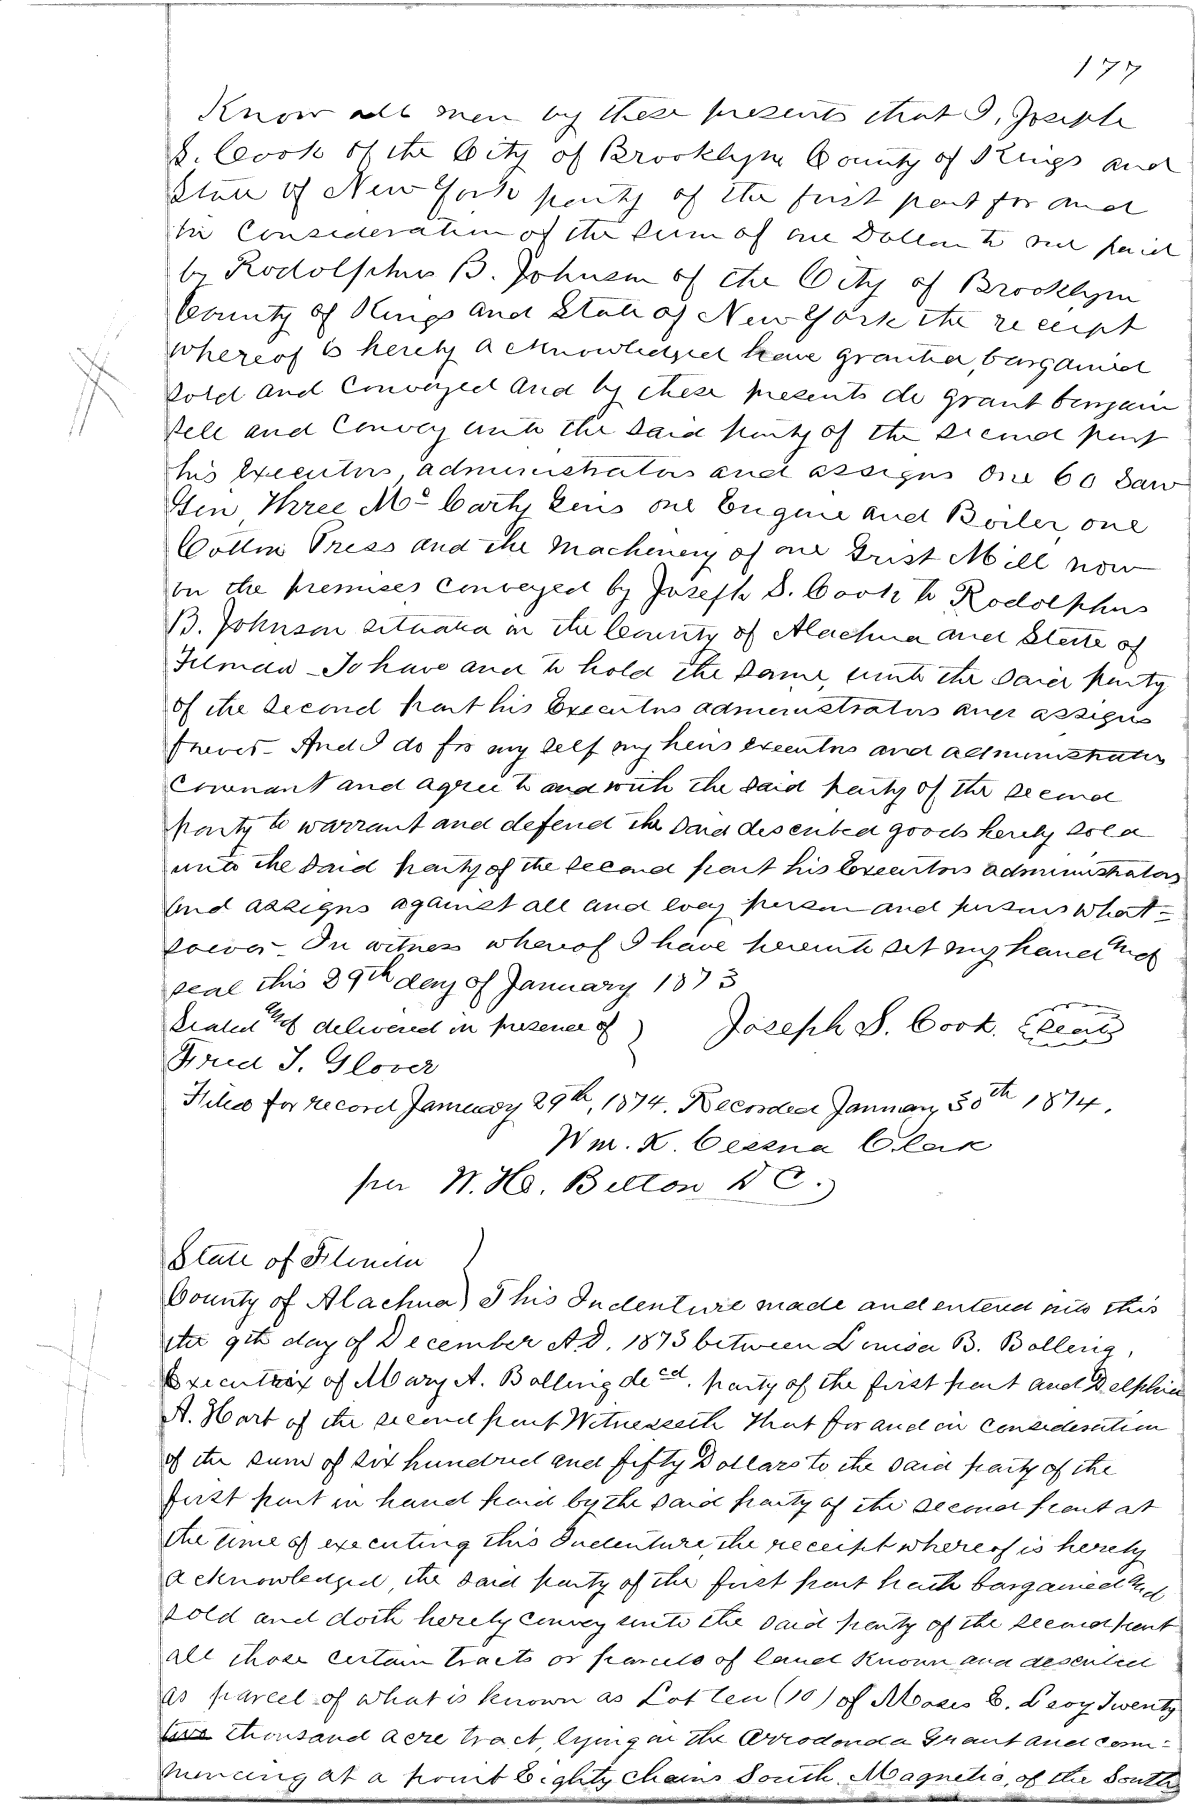 177
Know all men by these presents that I, Joseph
S. Cook of the City of Brooklyn County of Kings and
State of New York party of the first part for and
in Consideration of the sum of one Dollar to me paid
by Rodolphus B. Johnson of the City of Brooklyn
County of Kings and State of New York the receipt
whereof is hereby acknowledged have granted, bargained
sold and Conveyed and by these presents do grant bargain
sell and Convey unto the said party of the second part
his Executors, administrators and assigns One 60 Saw
Gin, Three Mc Carty Gins one Engine and Boiler, one
Cotton Press and the Machinery of one Grist Mill now
on the premises conveyed by Joseph S. Cook to Rodolphus
B. Johnson situated in the County of Alachua and State of
Florida - To have and to hold the same, unto the said party
of the second part his Executors administrators and assigns
forever - And I do for my self my heirs executors and administrators
Covenant and agree to and with the said party of the second
party to warrant and defend the said described goods hereby sold
unto the said party of the second part his Executors administrators
and assigns against all and every person and persons what=
soever - In witness whereof I have hereunto set my hand and
seal this 29th day of January 1873
Sealed and delivered in presence of } Joseph S. Cook. (Seal)
Fred T. Glover
Filed for record January 29th, 1874. Recorded January 30th 1874.
Wm. K. Cessna Clerk
per W. H. Belton D C.
State of Florida }
County of Alachua } This Indenture made and entered into this
the 9th day of December A.D. 1873 between Louisa B. Bolling,
Executrix of Mary A. Bolling decd. party of the first part and Delphia
A. Hart of the second part Witnesseth That for and in consideration
of the sum of six hundred and fifty Dollars to the said party of the
first part in hand paid by the said party of the second part at
the time of executing this Indenture, the receipt whereof is hereby
acknowledged, the said party of the first part hath bargained and
sold and doth hereby convey unto the said party of the second part
all those certain tracts or parcels of land known and described
as parcel of what is known as Lot ten (10) of Moses E. Levy Twenty
two thousand acre tract, lying in the Arrodonda Grant and com=
mencing at a point Eighty Chains South, Magnetic, of the South